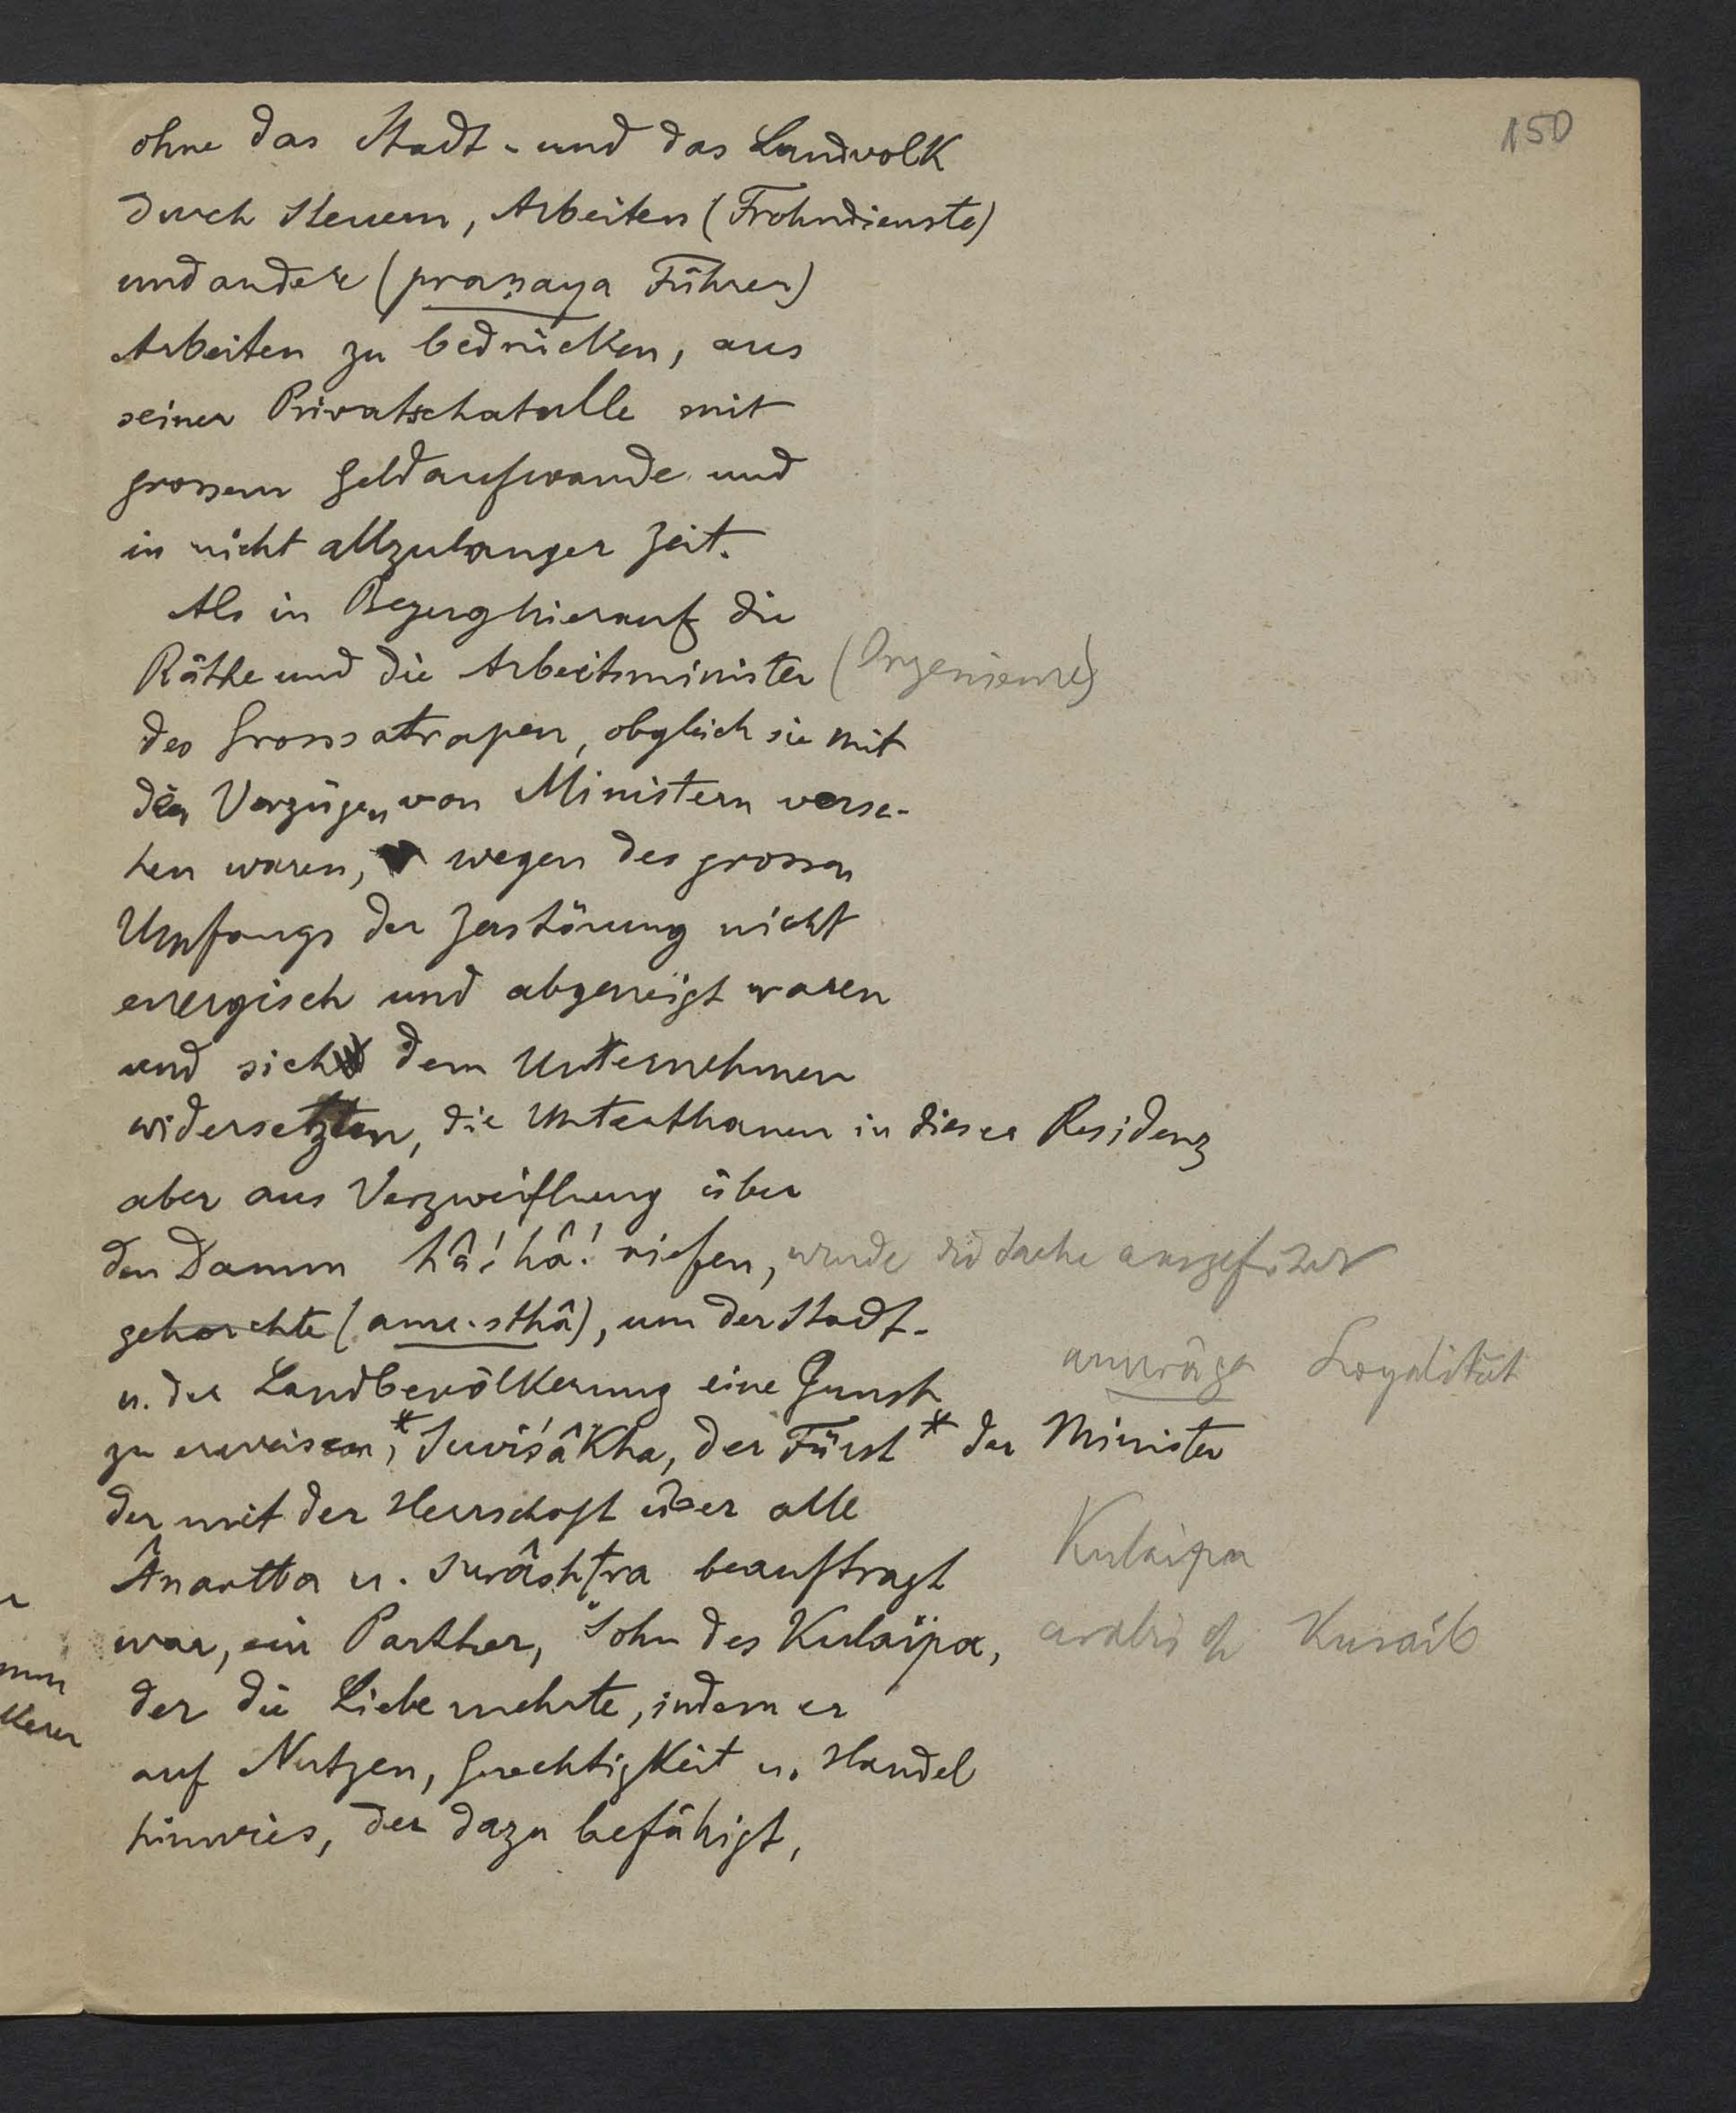 150
ohne das Stadt- und das Landvolk
durch Steuern, Arbeiten (Frohndienste)
und andere (praṇaya Führer)
Arbeiten zu bedrücken, aus
seiner Privatschatulle mit
grossem Geldaufwande und
in nicht allzulanger Zeit.
Als in Bezug hierauf die
Räthe und die Arbeitsminister (Ingenieure)
des Grosssatrapen, obgleich sie mit
den Vorzügen von Ministern verse-
hen waren, wegen des grossen
Umfangs der Zerstörung nicht
energisch und abgeneigt waren
und sich dem Unternehmen
widersetzten, die Unterthanen in dieser Residenz
aber aus Verzweiflung über
den Damm hâ! hâ! riefen, wurde die Sache ausgeführt
gehorchte (anu-sthâ), um der Stadt-
u. der Landbevölkerung eine Gunst
anurâga Loyalität
zu erweisen,* Suviśâkha, der Fürst * der Minister
der mit der Herrschaft über alle
Ânartta u. Surâshṭra beauftragt
Kulaipa
war, ein Parther, Sohn des Kulaipa,
arabisch Kusaib
der die Liebe mehrte, indem er
auf Nutzen, Gerechtigkeit u. Handel
hinwies, der dazu befähigt,